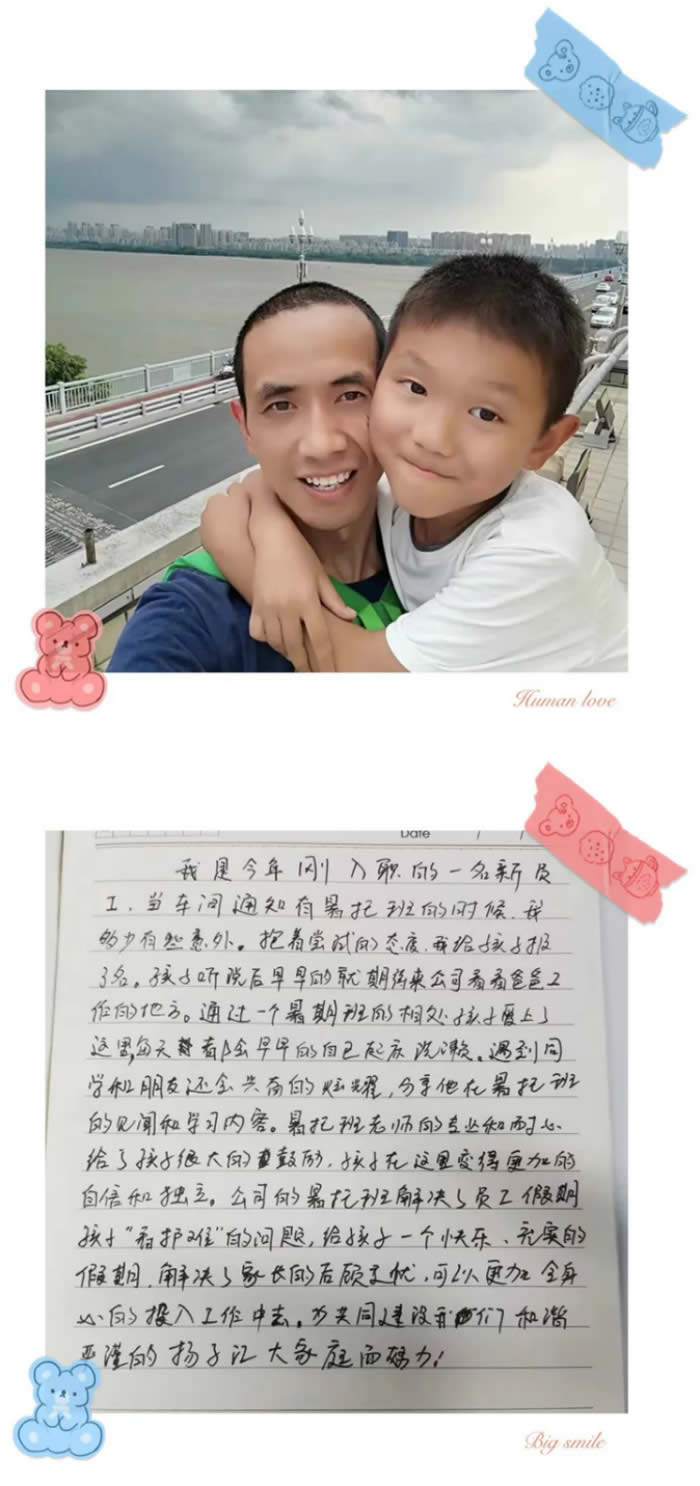 Human love
Date / /
我是今年刚入职的一名新员
工，当车间通知有暑托班的时候，我
多少有些意外。抱着尝试的态度，我给孩子报
了名。孩子听说后早早的就期待来公司看看爸爸工
作的地方。通过一个暑期班的相处孩子爱上了
这里，每天都会早早的自己起床洗漱。遇到同
学和朋友还会兴奋的炫耀，分享他在暑托班
的见闻和学习内容。暑托班老师的专业和耐心
给了孩子很大的鼓励，孩子在这里变得更加的
自信和独立。公司的暑托班解决了员工假期
孩子“看护难”的问题，给孩子一个快乐、充实的
假期，解决了家长的后顾之忧，可以更加全身
心的投入工作中去。为共同建设我们和谐
严谨的扬子江大家庭而努力！
Big smile